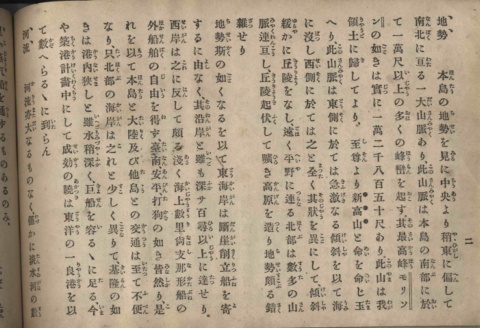 二
地勢、 本島の地勢を見に中央より稍東に偏して
南北に亘る一大山脈あり此山脈は本島の南部に於
て一萬尺以上の多くの峰巒を起す其最高峰モリソ
ンの如きは實に一萬二千八百五十尺あり此山は我
領土に歸してより、至尊より新高山と命を發せら
へり此山脈は東側に於ては急激なる傾斜を以て海
に沒し西側に於ては之と全く其狀を異にして傾斜
緩かに丘陵をなし遠く平野に連る北部は數多の山
脈連亘し丘陵起伏して曠き高原を造り地勢頗る錯
雜せり
地勢斯の如くなるを以て東海岸は斷崖削立船を寄
するに由なく其沿岸と雖も深サ百尋以上に達せり、
西岸は之に反して頗る淺く海上數里尚支那形船の
外船舶の自由を得す臺南安平打狗の如き皆然り是
れを以て本島と大陸及び他島との交通は至て不便
なり只北部の海岸は之れと少しく異りて、基隆の如
きは港內狹しと雖水稍深く、巨船を容るヽに足る今
や築港計畫中にして成効の曉は東洋の一良港を以
て數へらるヽに到らん
河流、 河流亦大なるものなく僅かに淡水河の